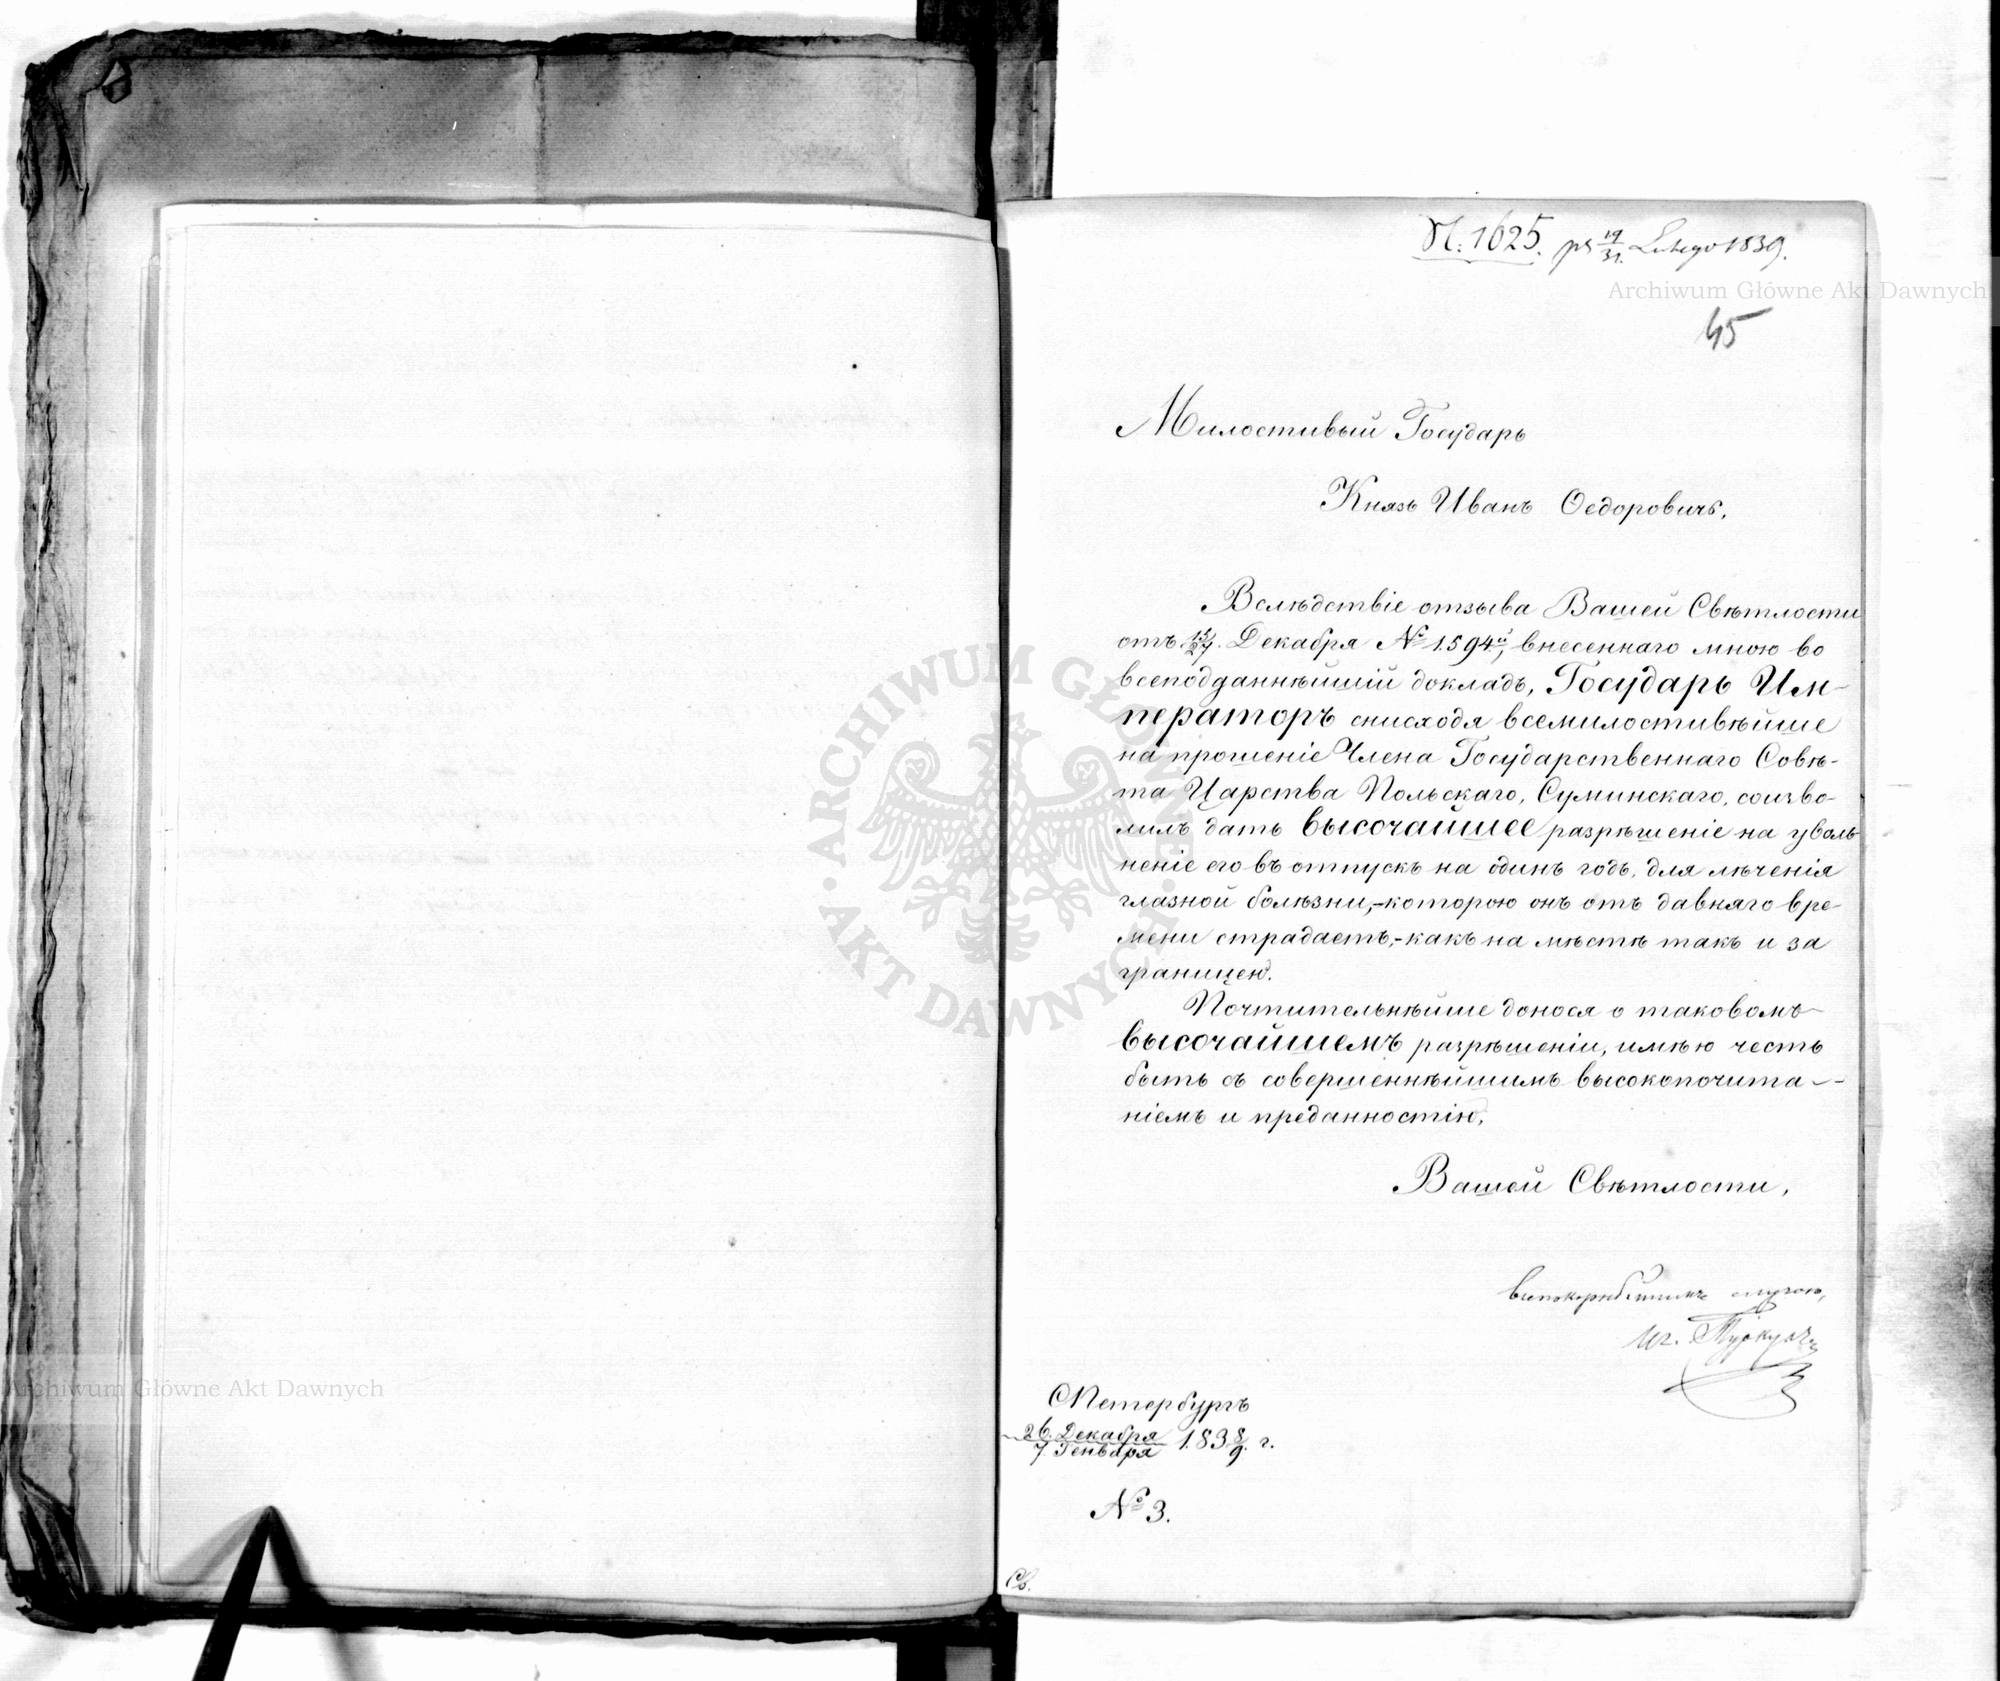 N. 1625. pr 19/31. Lutego 1839.
Archiwum Główne Akt Dawnych
45
Милостивый Государь
Князь Иванъ Ѳедоровичъ,
Вслѣдствіе отзыва Вашей Свѣтлости
отъ 15/27. Декабря № 1594й, внесеннаго мною во
всеподданнѣйшій докладъ, Государь Им-
ператоръ снисходя всемилостивѣйше
на прошеніе Члена Государственнаго Совѣ-
та Царства Польскаго, Суминскаго, соизво-
лилъ дать высочайшее разрѣшеніе на уволь
неніе его въ отпускъ на одинъ годъ, для лѣченія
глазной болѣзни,-которою онъ отъ давняго вре-
мени страдаетъ,-какъ на мѣстѣ такъ и за
границею.
Почтительнѣйше донося о таковомъ
высочайшемъ разрѣшеніи, имѣю честь
быть съ совершеннѣйшимъ высокопочита-
ніемъ и преданностію,
Вашей Свѣтлости,
всепокорнѣйшимъ слугою,
Иг. Туркулъ
СПетербургъ
26. Декабря/7. Генваря 1838/9. г.
№ 3.
Св.
ARCHIWUM GŁÓWNE AKT DAWNYCH
Archiwum Główne Akt Dawnych